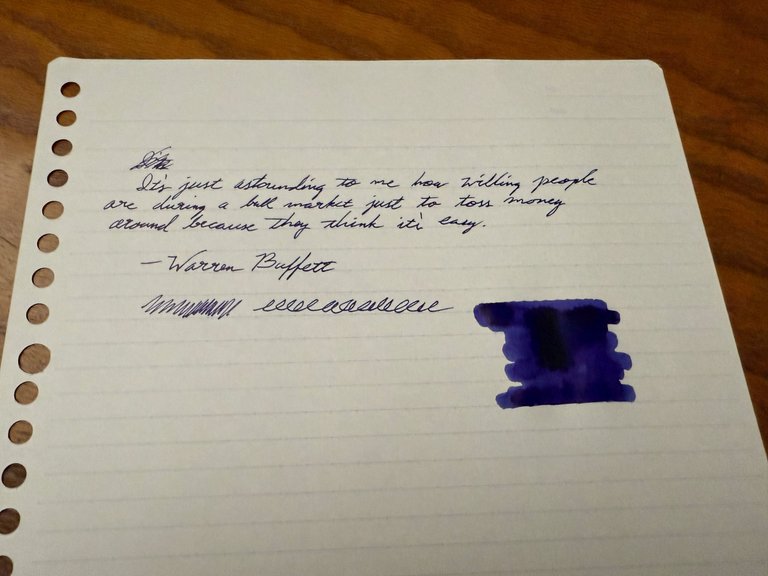 It's just astounding to me how willing people
are during a bull market just to toss money
around because they think it's easy.
— Warren Buffett